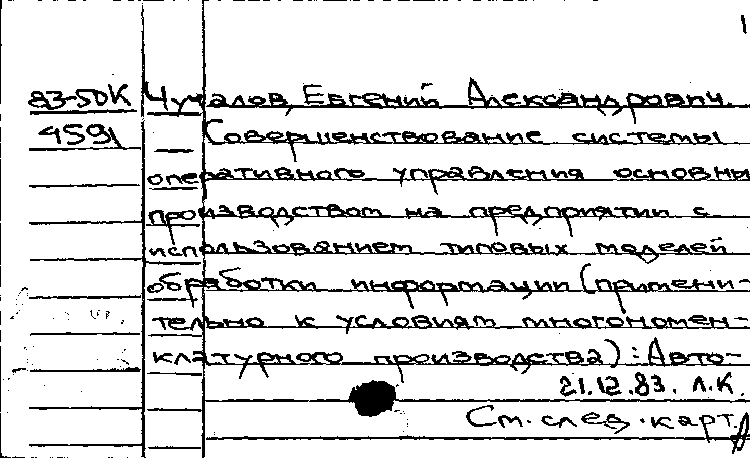 1
83-50К Чучалов, Евгений Александрович
4591 Совершенствование системы
оперативного управления основны
производством на предприятии с
использованием типовых моделей
обработки информации (примени-
тельно к условиям многономен-
клатурного производства): Авто-
21.12.83. Л.К.
См. след. карт.